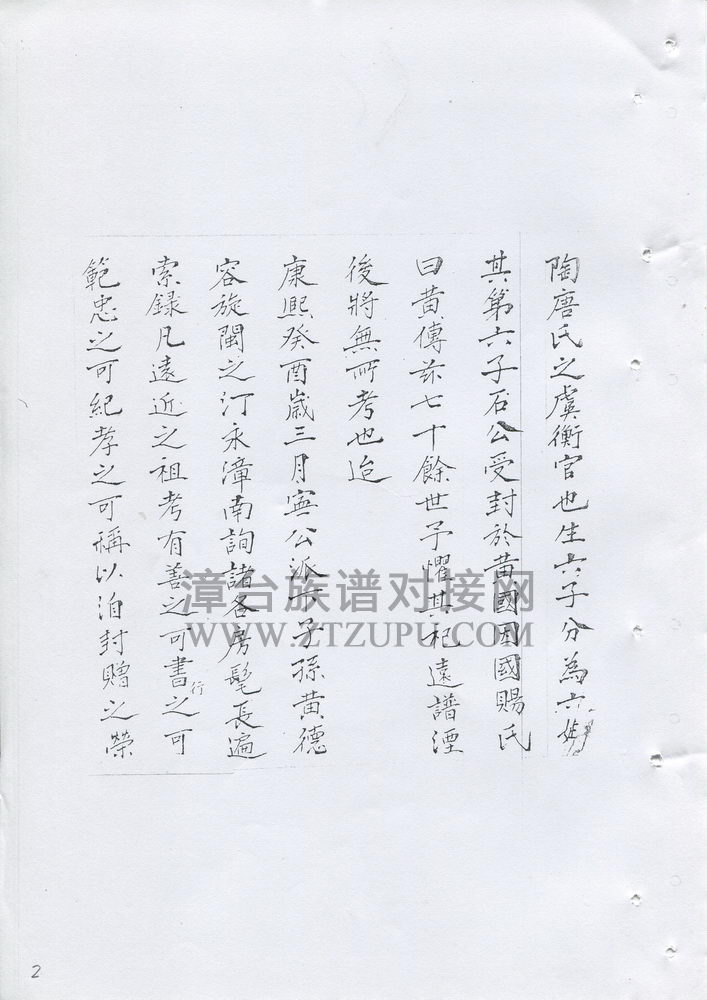 陶唐氏之虞衡官也生六子分為六姓
其第六子石公受封於黃國因國賜氏
曰黃傳茲七十餘世予懼其杞遠譜湮
後將無所考也迨
康熙癸酉歲三月寧公派下子孫黃德
容旋閩之汀永漳南詢諸各房髦長遍
索錄凡遠近之祖考有善之可書行之可
範忠之可紀孝之可稱以洎封贈之榮
漳台族谱对接网
WWW.ZTZUPU.COM
2